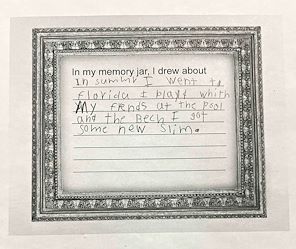 In my memory jar, I drew about
In summr I went to
Florida I playd whith
My frnds at the pool
and the Bech I got
some new slim.